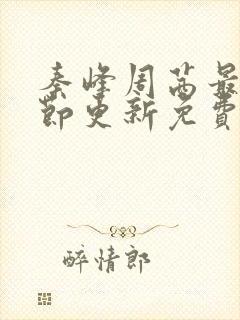 秦峰周茜最
节更新免费
醉情郎